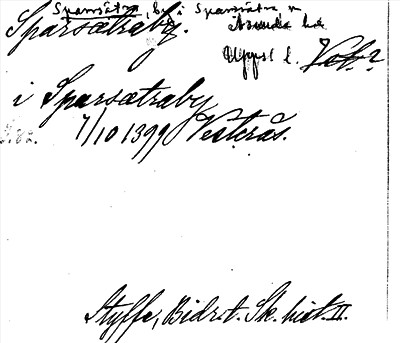 Sparsätra, by i Sparsätra sn
Sparsætraby. Åsunda hd
Upps l. Vstm?
i Sparsætraby
7/10 1399 Vesterås.
Styffe, Bidr. t. Sk. hist. II.